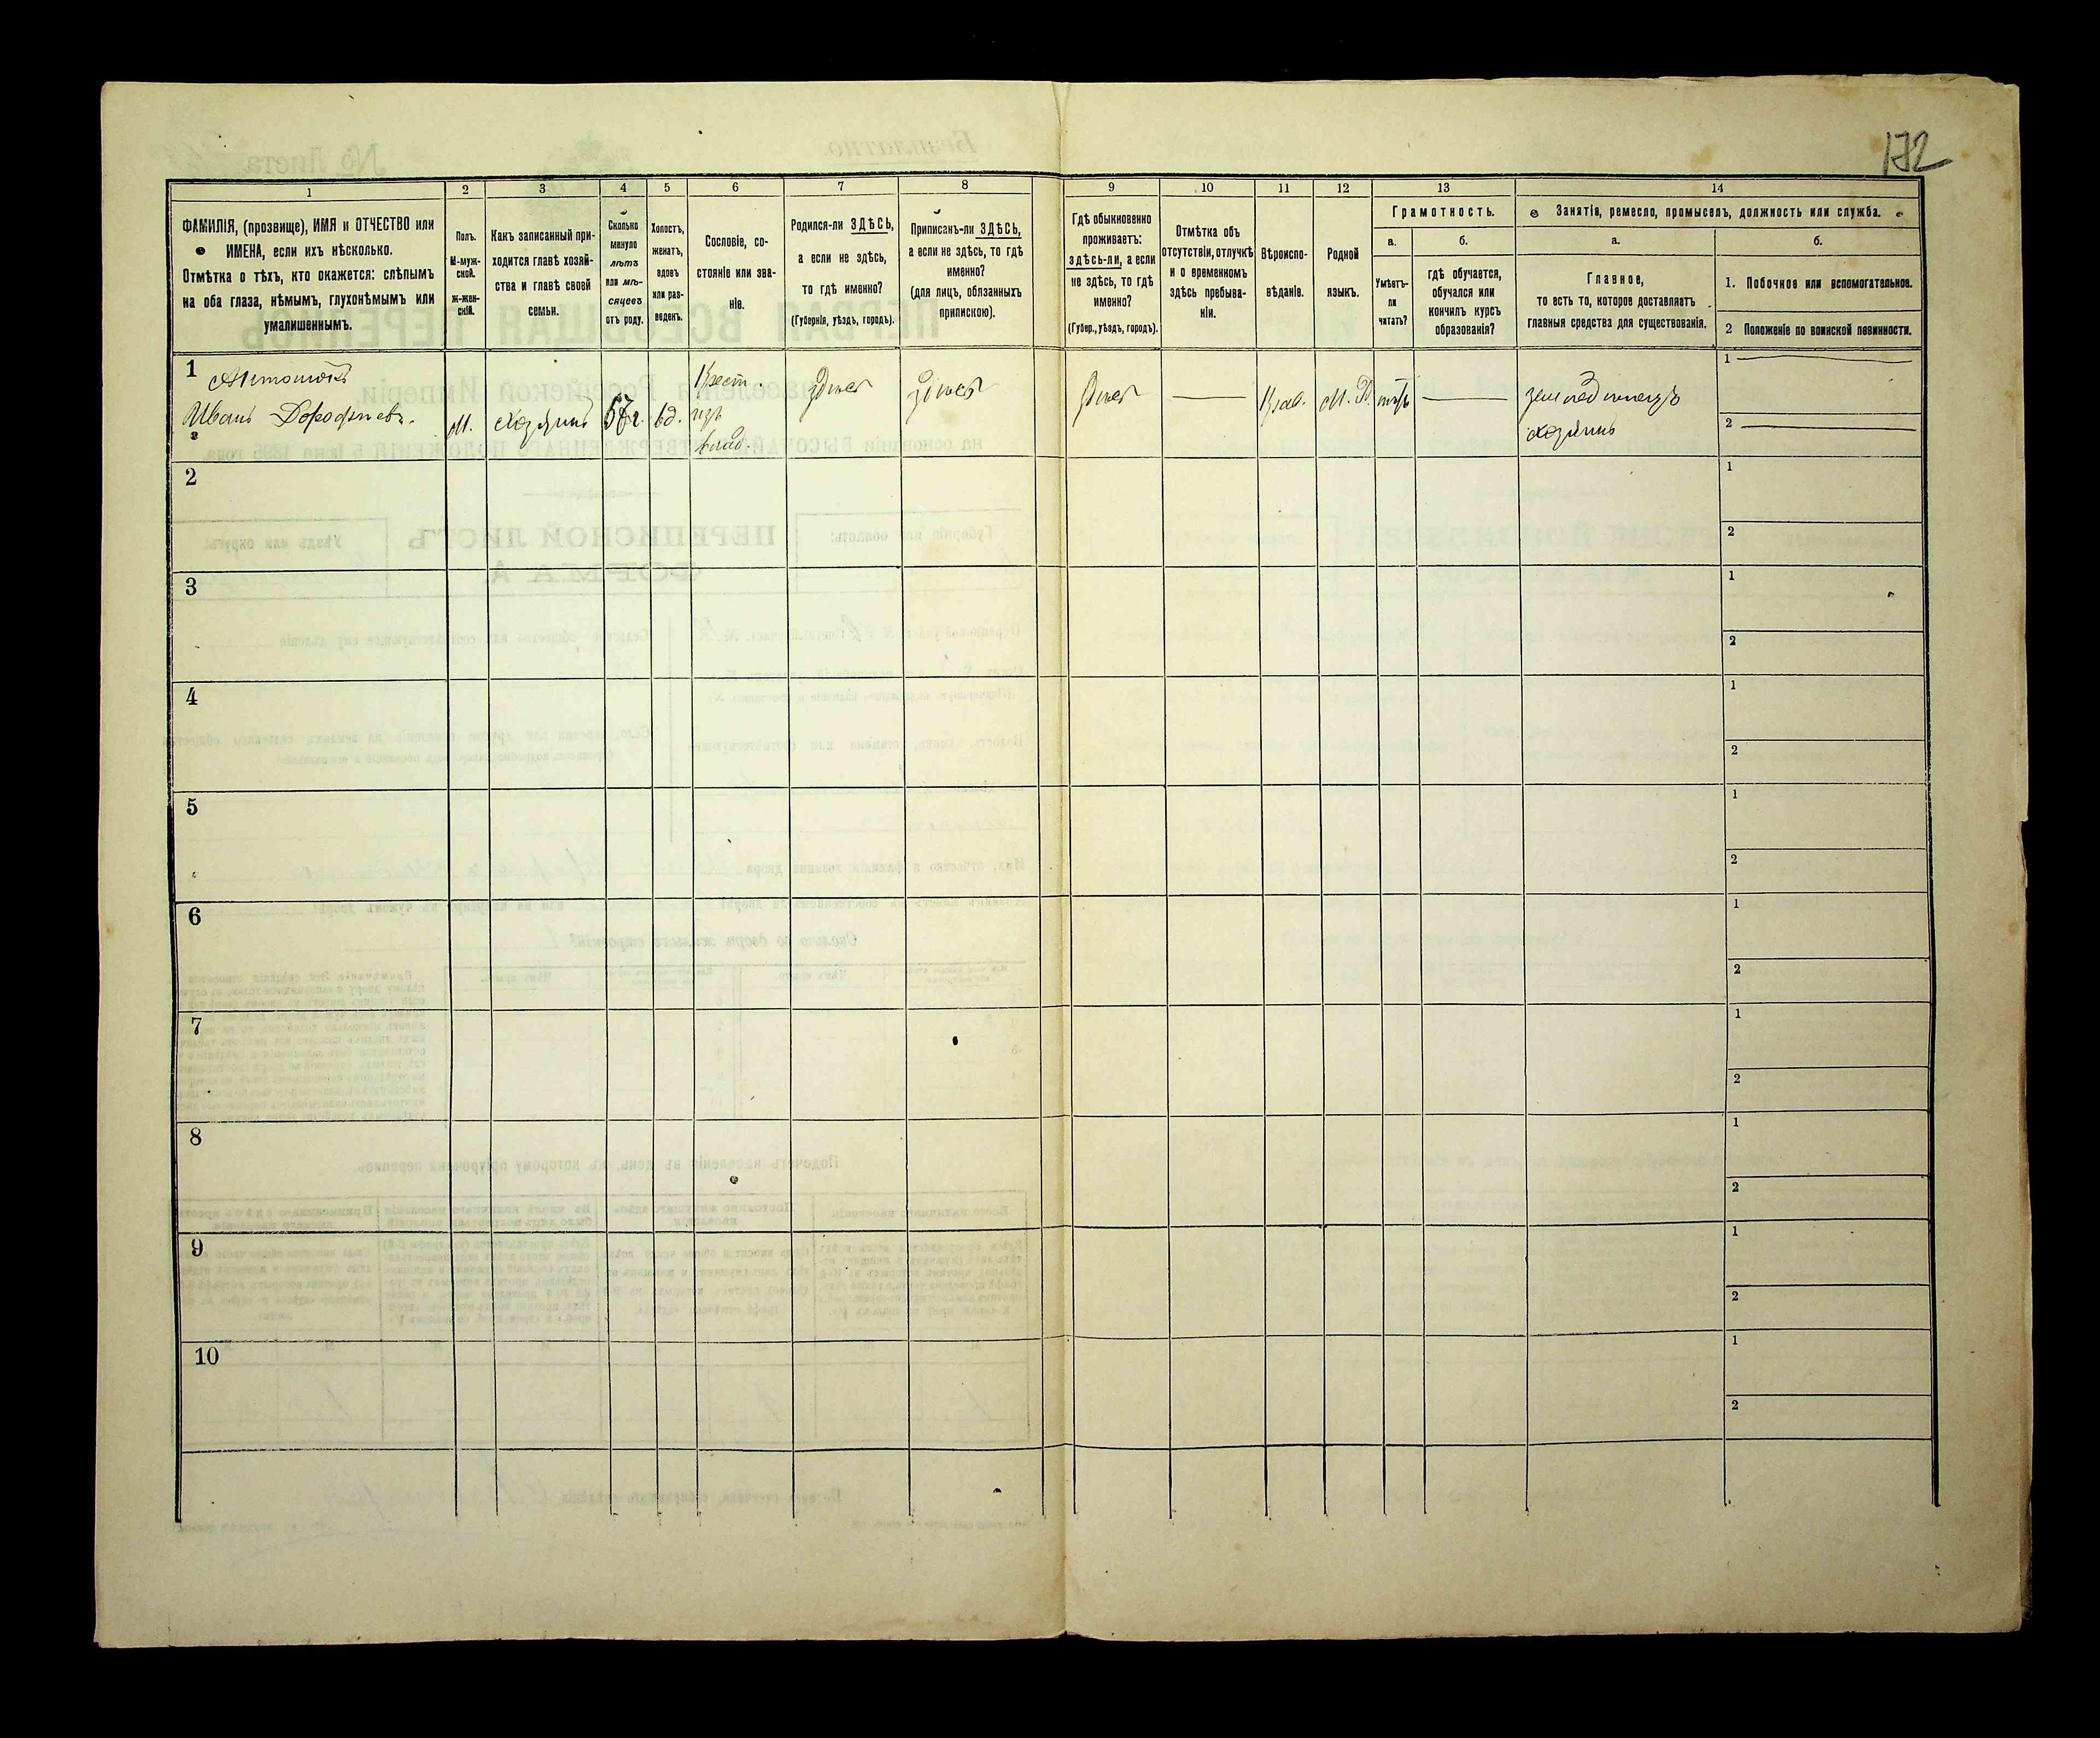 172
1
2
3
4
5
6
7
8
9
10
11
12
13
14
ФАМИЛІЯ, (прозвище), ИМЯ и ОТЧЕСТВО или
ИМЕНА, если ихъ нѣсколько.
Отмѣтка о тѣхъ, кто окажется: слѣпымъ
на оба глаза, нѣмымъ, глухонѣмымъ или
умалишеннымъ.
Полъ.
М-муж-
ской.
Ж-жен-
скій.
Какъ записанный при-
ходится главѣ хозяй-
ства и главѣ своей
семьи.
Сколько
минуло
лѣтъ
или мѣ-
сяцевъ
отъ роду.
Холостъ,
женатъ,
вдовъ
или раз-
веденъ.
Сословіе, со-
стояніе или зва-
ніе.
Родился-ли ЗДѢСЬ,
а если не здѣсь,
то гдѣ именно?
(Губернія, уѣздъ, городъ).
Приписанъ-ли ЗДѢСЬ,
а если не здѣсь, то гдѣ
именно?
(для лицъ, обязанныхъ
припискою).
Гдѣ обыкновенно
проживаетъ:
здѣсь-ли, а если
не здѣсь, то гдѣ
именно?
(Губер., уѣздъ, городъ).
Отмѣтка объ
отсутствіи, отлучкѣ
и о временномъ
здѣсь пребыва-
ніи.
Вѣроиспо-
вѣданіе.
Родной
языкъ.
Грамотность.
а.
Умѣетъ-
ли
читать?
б.
гдѣ обучается,
обучался или
кончилъ курсъ
образованія?
Занятія, ремесло, промыселъ, должность или служба.
а.
Главное,
то есть то, которое доставляетъ
главныя средства для существованія.
б.
1. Побочное или вспомогательное.
2 Положеніе по воинской повинности.
1
Иванъ Дорофѣевъ.
М.
хозяинъ
67 г.
вд.
Крест.
изъ
влад.
здѣсь
здѣсь
здѣсь
—
Прав.
М. Р.
нѣтъ
—
земледѣлецъ
хозяинъ
1 —
2 —
2
1
2
3
1
2
4
1
2
5
1
2
6
1
2
7
1
2
8
1
2
9
1
2
10
1
2